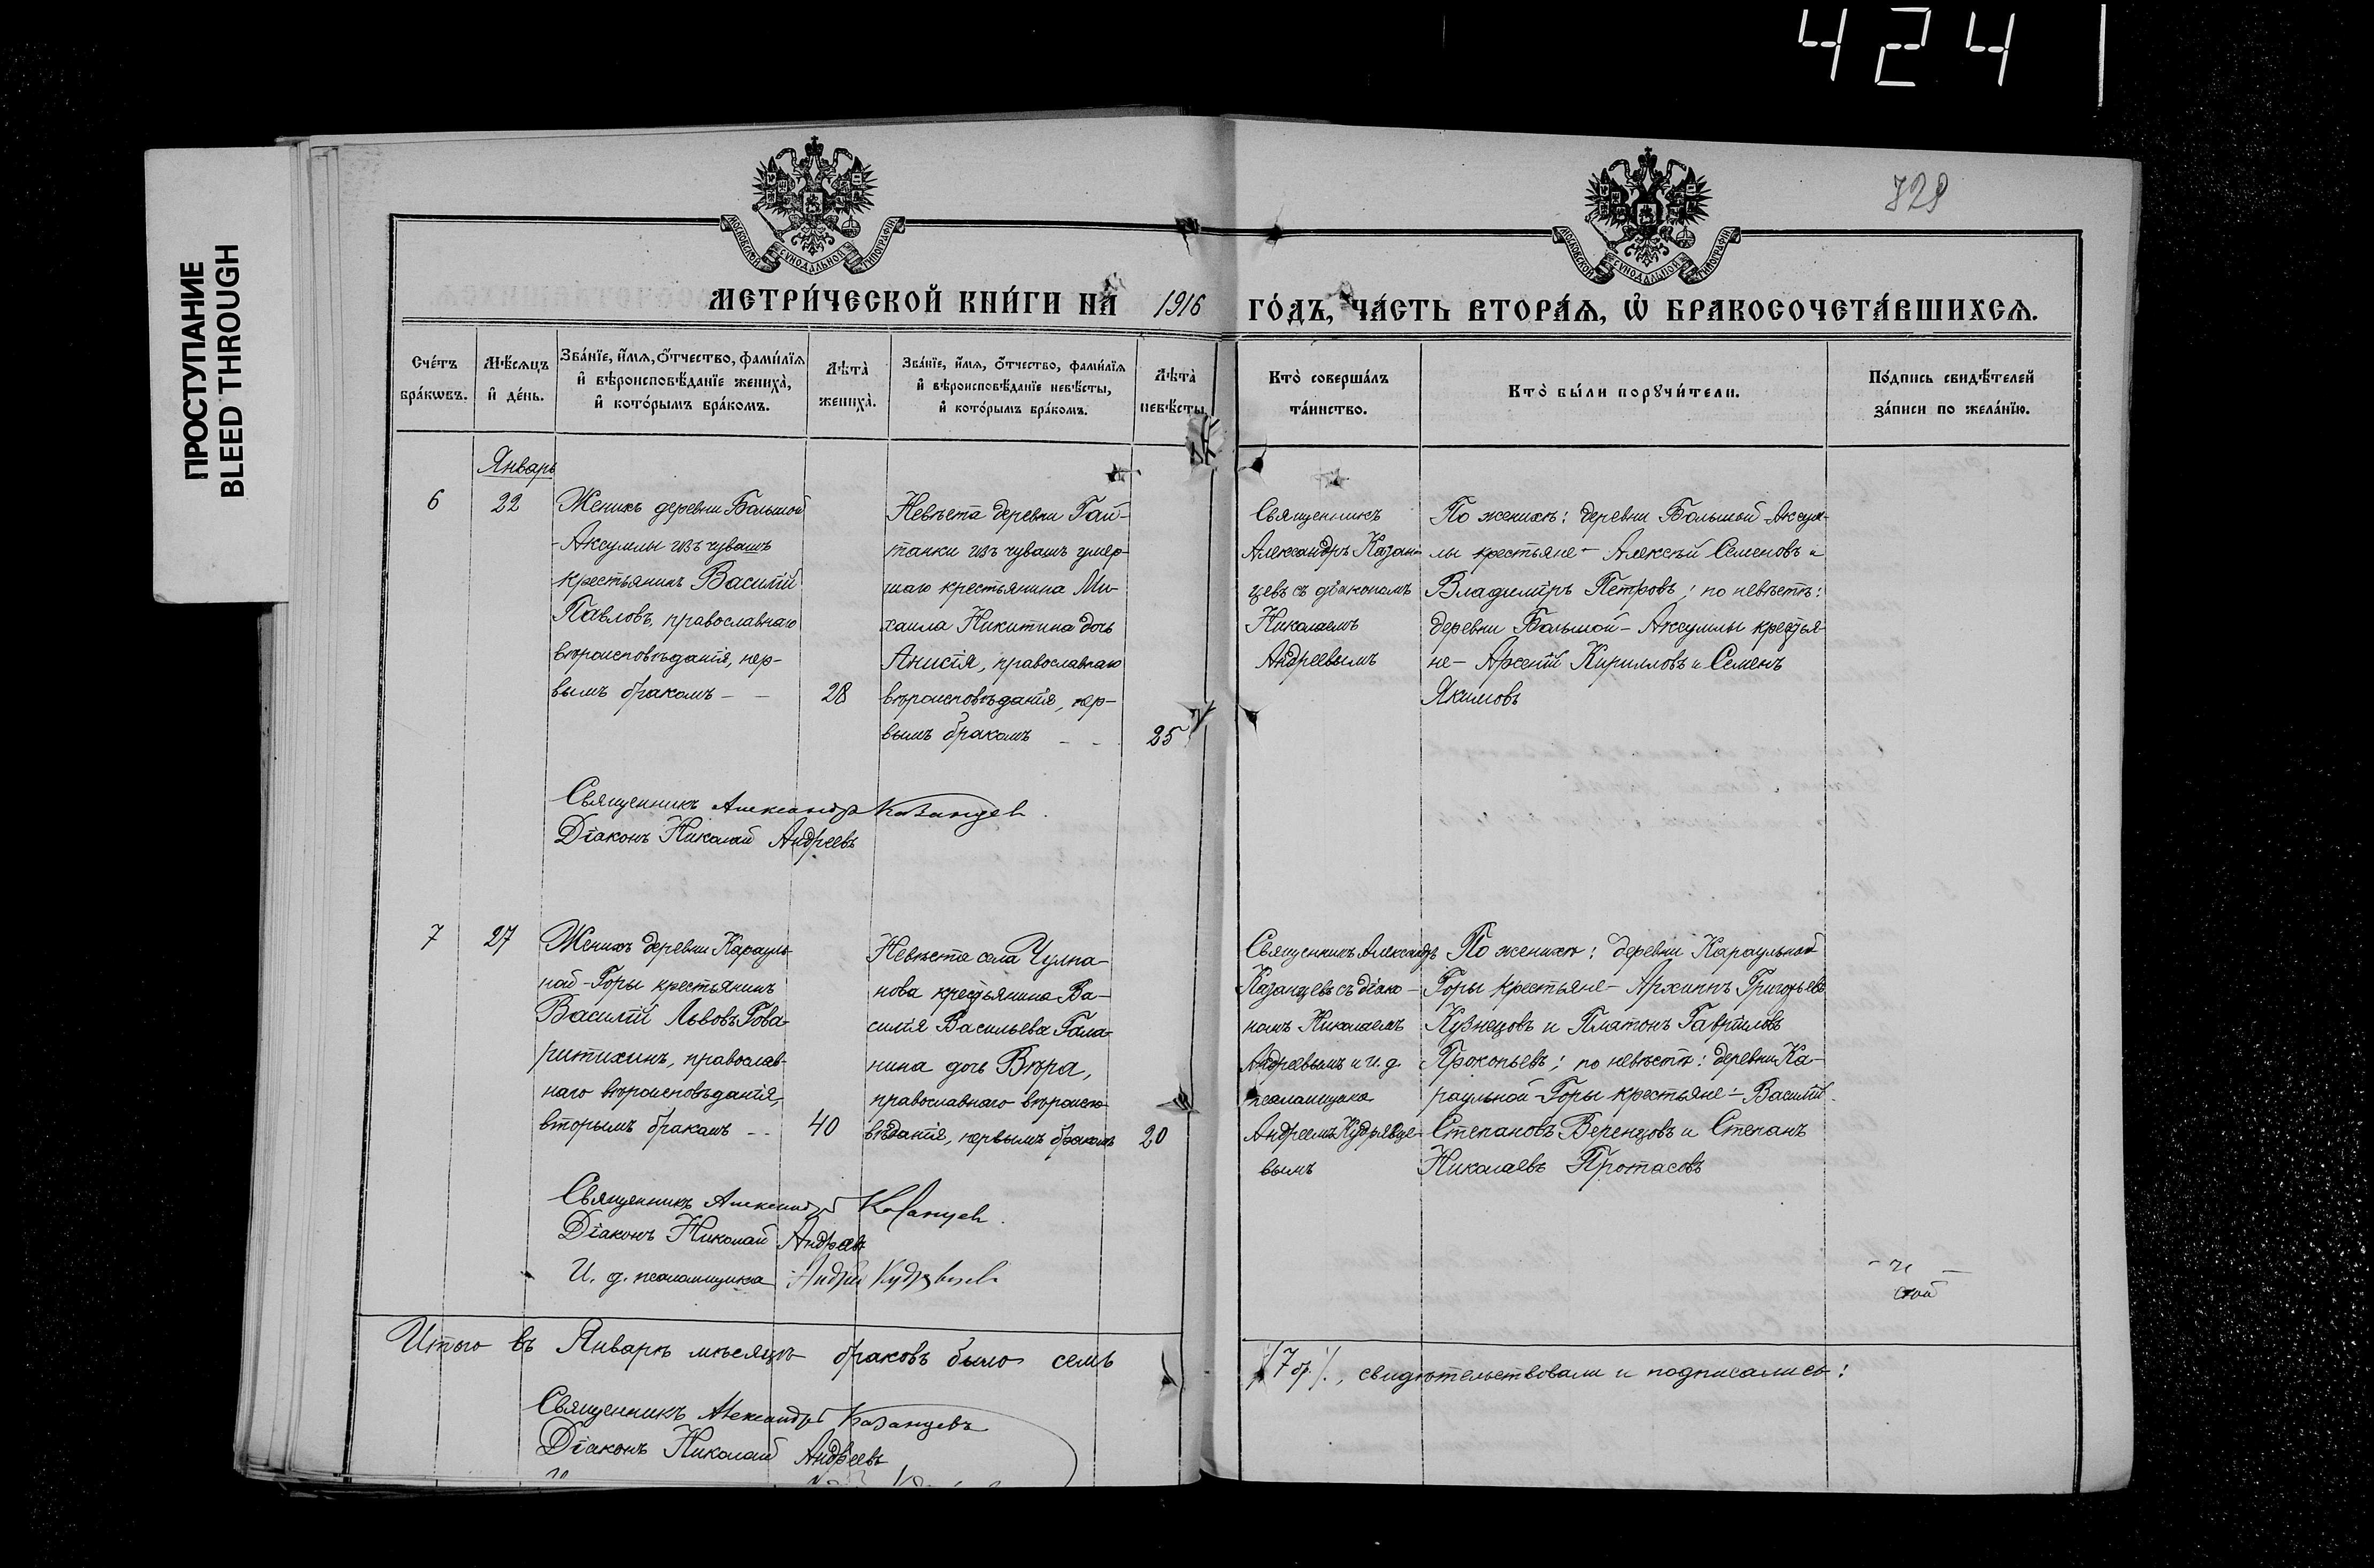 424
ПРОСТУПАНИЕ
BLEED THROUGH
728
МОСКОВСКОЙ СѴНОДАЛЬНОЙ ТИПОГРАФІИ
МОСКОВСКОЙ СѴНОДАЛЬНОЙ ТИПОГРАФІИ
МЕТРИ́ЧЕСКОЙ КНИ́ГИ НА 1916 ГО́ДЪ, ЧА́СТЬ ВТОРА́Ѧ, Ѡ҆ БРАКОСОЧЕТА́ВШИХСѦ.
Сче́тъ бра́кѡвъ.
Мѣ́сѧцъ и҆ де́нь.
Зва́нїе, и҆́мѧ, ѻ҆́тчество, фами́лїѧ
и҆ вѣроисповѣ́данїе жениха̀,
и҆ кото́рымъ бра́комъ.
Лѣта̀ жениха̀.
Зва́нїе, и҆́мѧ, ѻ҆́тчество, фами́лїѧ
и҆ вѣроисповѣ́данїе невѣ́сты,
и҆ кото́рымъ бра́комъ.
Лѣта̀ невѣ́сты
Кто̀ соверша́лъ
та́инство.
Кто̀ бы́ли порꙋчи́тели.
По́дпись свидѣ́телей
за́писи по жела́нїю.
Январь
6
22
Женихъ деревни Большой
-Аксумлы изъ чувашъ
крестьянинъ Василій
Павловъ, православнаго
вѣроисповѣданія, пер-
вымъ бракомъ - -
28
Невѣста деревни Гай-
танки изъ чувашъ умер-
шаго крестьянина Ми-
хаила Никитина дочь
Анисія, православнаго
вѣроисповѣданія, пер-
вымъ бракомъ - -
25
Священникъ
Александръ Казан-
цевъ съ діакономъ
Николаемъ
Андреевымъ
По женихѣ: деревни Большой-Аксум-
лы крестьяне - Алексѣй Семеновъ и
Владиміръ Петровъ; по невѣстѣ:
деревни Большой-Аксумлы крестья-
не- Арсеній Кирилловъ и Семенъ
Якимовъ
Священникъ Александръ Казанцев.
Діаконъ Николай Андреевъ
7
27
Женихъ деревни Карауль-
ной-Горы крестьянинъ
Василій Львовъ Гова-
ритихинъ, православ-
наго вѣроисповѣданія,
вторымъ бракомъ - -
40
Невѣста села Чулпа-
нова крестьянина Ва-
силія Васильева Гала-
нина дочь Вѣра,
православнаго вѣроиспо-
вѣданія, первымъ бракомъ
20
Священникъ Александръ
Казанцевъ съ діако-
номъ Николаемъ
Андреевымъ и и. д.
псаломщика
Андреемъ Кудрявце-
вымъ
По женихѣ: деревни Караульной
Горы крестьяне - Архиппъ Григорьевъ
Кузнецовъ и Платонъ Гавріиловъ
Прокопьевъ; по невѣстѣ: деревни Ка-
раульной-Горы крестьяне - Василій
Степановъ Веренцовъ и Степанъ
Николаевъ Протасовъ
Священникъ Александръ Казанцев.
Діаконъ Николай Андреевъ
И. д. псаломщика Андрей Кудрявцевъ
Итого въ Январѣ мѣсяцѣ браковъ было семь /7 бр./., свидѣтельствовали и подписались:
Священникъ Александръ Казанцевъ
Діаконъ Николай Андреевъ